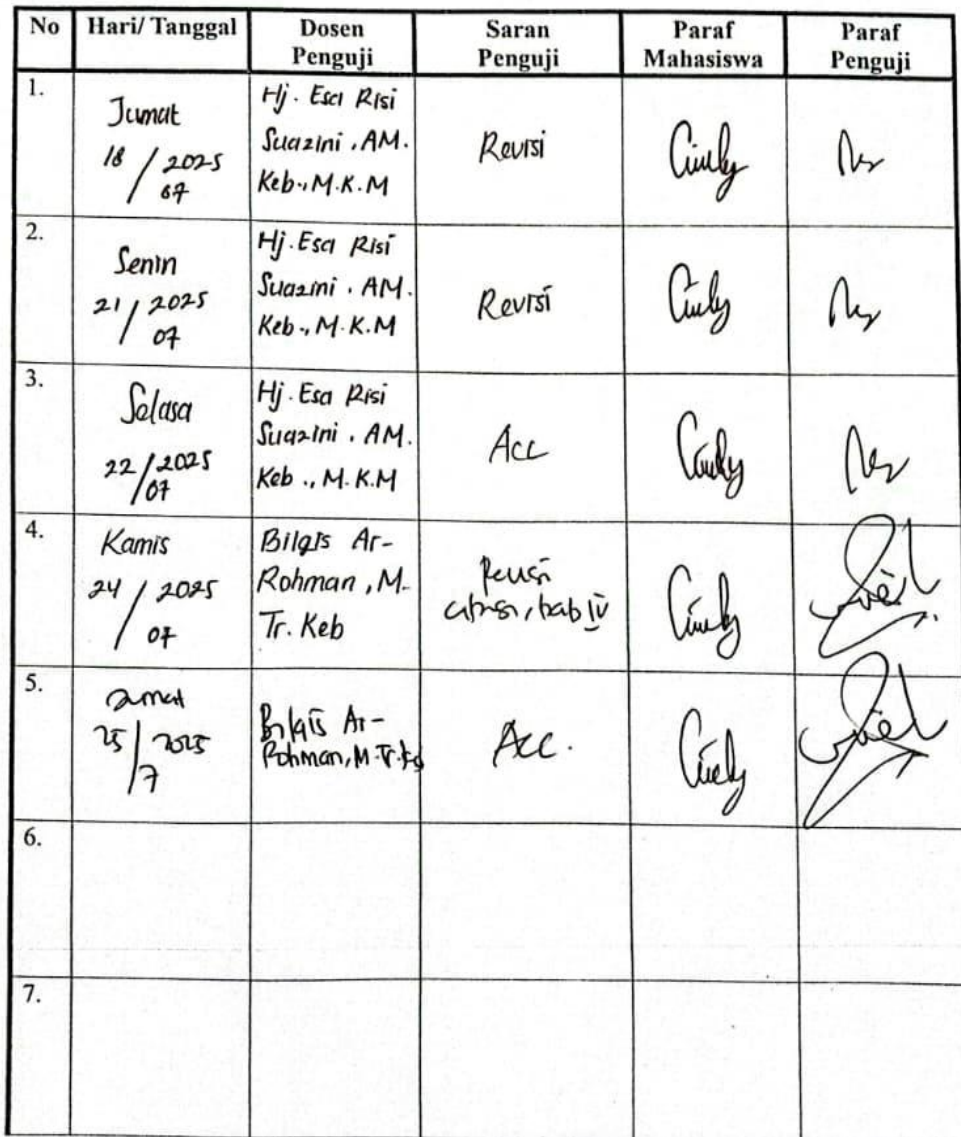 No Hari/ Tanggal Dosen Penguji Saran Penguji Paraf Mahasiswa Paraf Penguji
1.
Jumat
18 / 2025
07
Hj. Esa Risi
Suazini, AM.
Keb., M.K.M
Revisi
2.
Senin
21 / 2025
07
Hj. Esa Risi
Suazini, AM.
Keb., M.K.M
Revisi
3.
Selasa
22 / 2025
07
Hj. Esa Risi
Suazini, AM.
Keb., M.K.M
Acc
4.
Kamis
24 / 2025
07
Bilqis Ar-
Rohman, M-
Tr. Keb
Revisi
sitasi, bab IV
5.
Jumat
25 / 2025
7
Bilqis Ar-
Rohman, M.Tr.Keb
Acc.
6.
7.